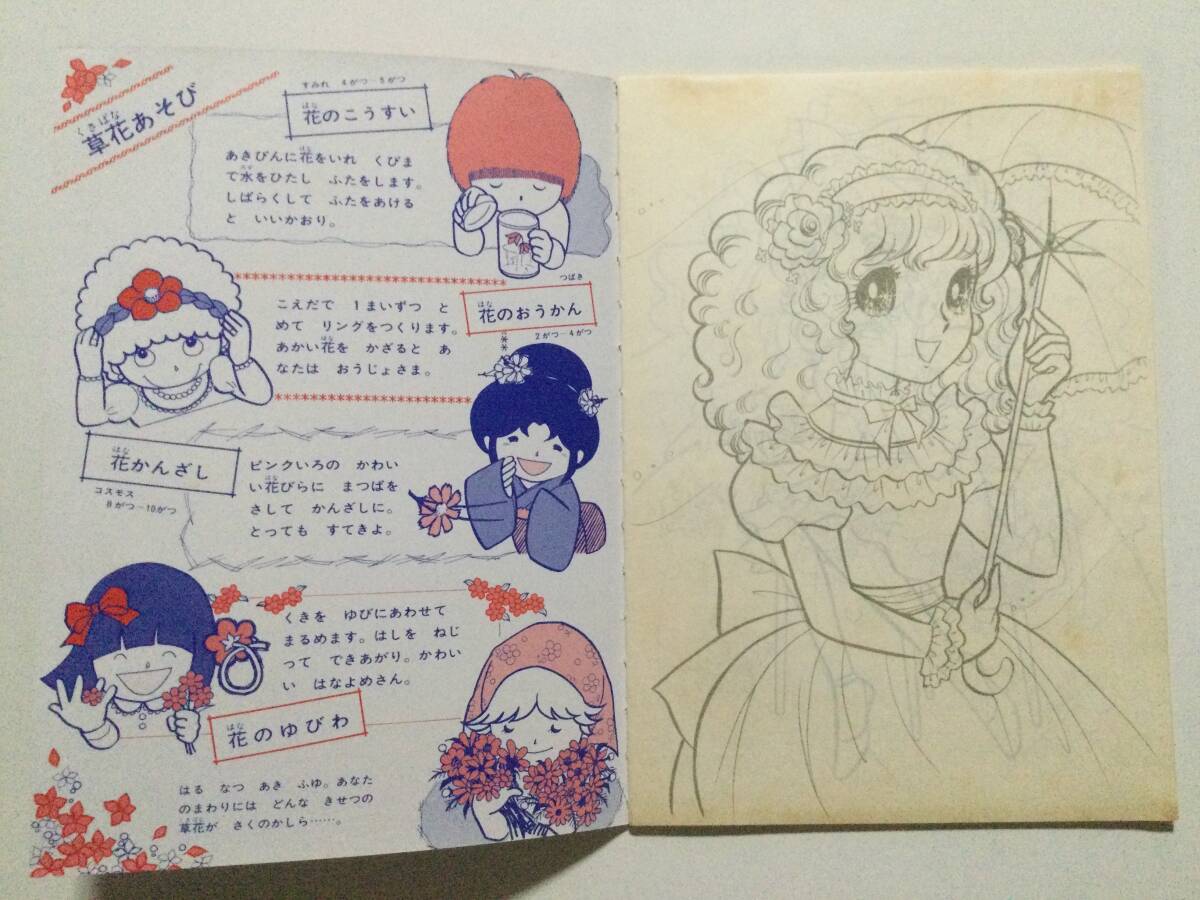 草花あそび
くさばな
すみれ 4がつ-5がつ
花のこうすい
はな
あきびんに花をいれ くびま
はな
て水をひたし ふたをします。
みず
しばらくして ふたをあける
と いいかおり。
つばき
花のおうかん
はな
2がつ-4がつ
こえだで 1まいずつ と
めて リングをつくります。
あかい花を かざると あ
はな
なたは おうじょさま。
花かんざし
はな
コスモス
8がつ-10がつ
ピンクいろの かわい
い花びらに まつばを
はな
さして かんざしに。
とっても すてきよ。
くきを ゆびにあわせて
まるめます。はしを ねじ
って できあがり。かわい
い はなよめさん。
花のゆびわ
はな
はる なつ あき ふゆ。あなた
のまわりには どんな きせつの
草花が さくのかしら……。
くさばな